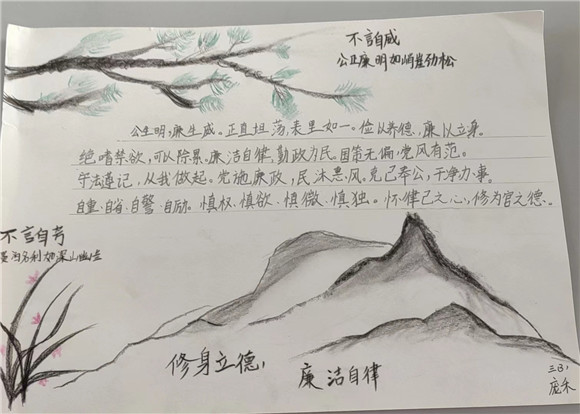 不言自威
公正廉明如峭崖劲松
公生明,廉生威。正直坦荡,表里如一。俭以养德,廉以立身。
绝嗜禁欲,可以除累。廉洁自律,勤政为民。国策无偏,党风有范。
守法遵记,从我做起。党施廉政,民沐惠风。克己奉公,干净办事。
自重、自省、自警、自励。慎权、慎欲、慎微、慎独。怀律己之心,修为官之德。
不言自芳
名利如深山幽兰
修身立德,
廉洁自律
三(3)